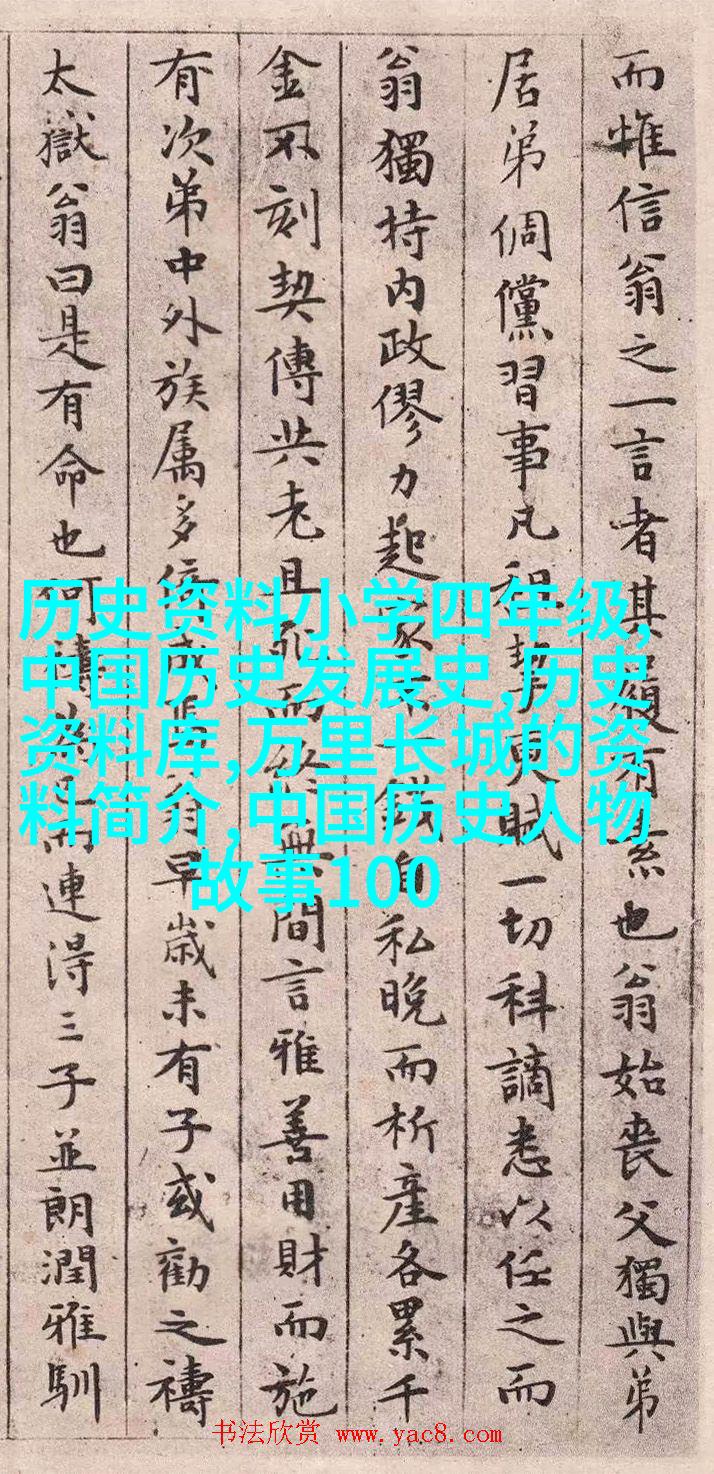 而惟信翁之一言者其履有素也翁始喪父獨與弟
居弟倜儻習事凡租挈更賦一切科謫悉以任之而
翁獨持内政僇力起家不一錢自私晚而析產各累千
金不刻契傳共老且死而於無間言雅善用財而施
有次弟中外族属多倚成焉翁早歲未有子或勸之禱
太嶽翁曰是有命也何禱爲已而連得三子並朗潤雅馴
历史资料小学四年级,
中国历史发展史,历史
资料库,万里长城的资
料简介,中国历史人物
故事100
书法欣赏 www.yac8.com